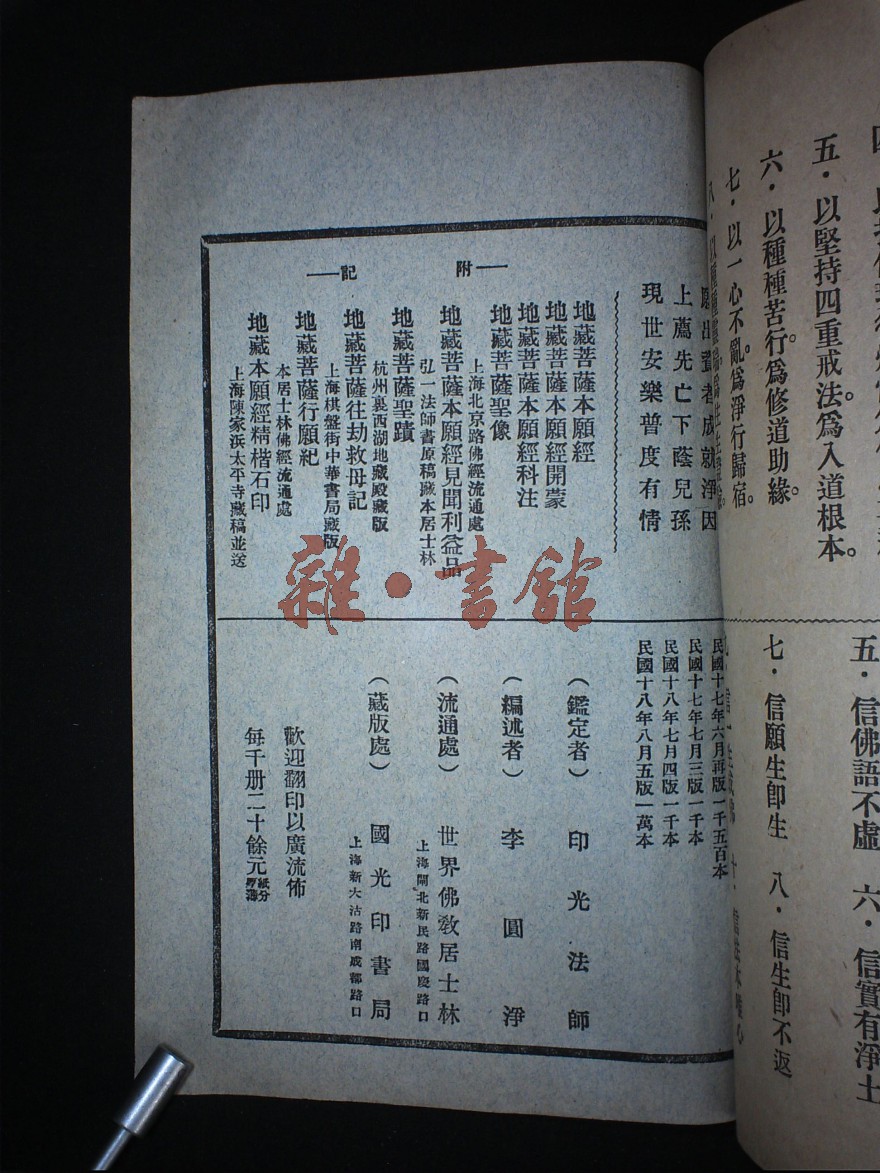 五・以堅持四重戒法。爲入道根本。
六・以種種苦行。爲修道助緣。
七・以一心不亂。爲淨行歸宿。
五・信佛語不虛　六・信實有淨土
七・信願生卽生　八・信生卽不返
願出資者成就淨因
上薦先亡下蔭兒孫
現世安樂普度有情
附記
地藏菩薩本願經
地藏菩薩本願經開蒙
地藏菩薩本願經科注
地藏菩薩聖像
上海北京路佛經流通處
地藏菩薩本願經見聞利益品
弘一法師書原稿藏本居士林
地藏菩薩聖蹟
杭州裏西湖地藏殿藏版
地藏菩薩往劫救母記
上海棋盤街中華書局藏版
地藏菩薩行願紀
本居士林佛經流通處
地藏本願經精楷石印
上海陳家浜太平寺藏稿並送
民國十七年六月再版一千五百本
民國十七年七月三版一千本
民國十八年七月四版一千本
民國十八年八月五版一萬本
（鑑定者）　印光法師
（編述者）　李圓淨
（流通處）　世界佛敎居士林
上海閘北新民路國慶路口
（藏版處）　國光印書局
上海新大沽路南成都路口
歡迎翻印以廣流佈
每千册二十餘元紙分厚薄
雜・書館